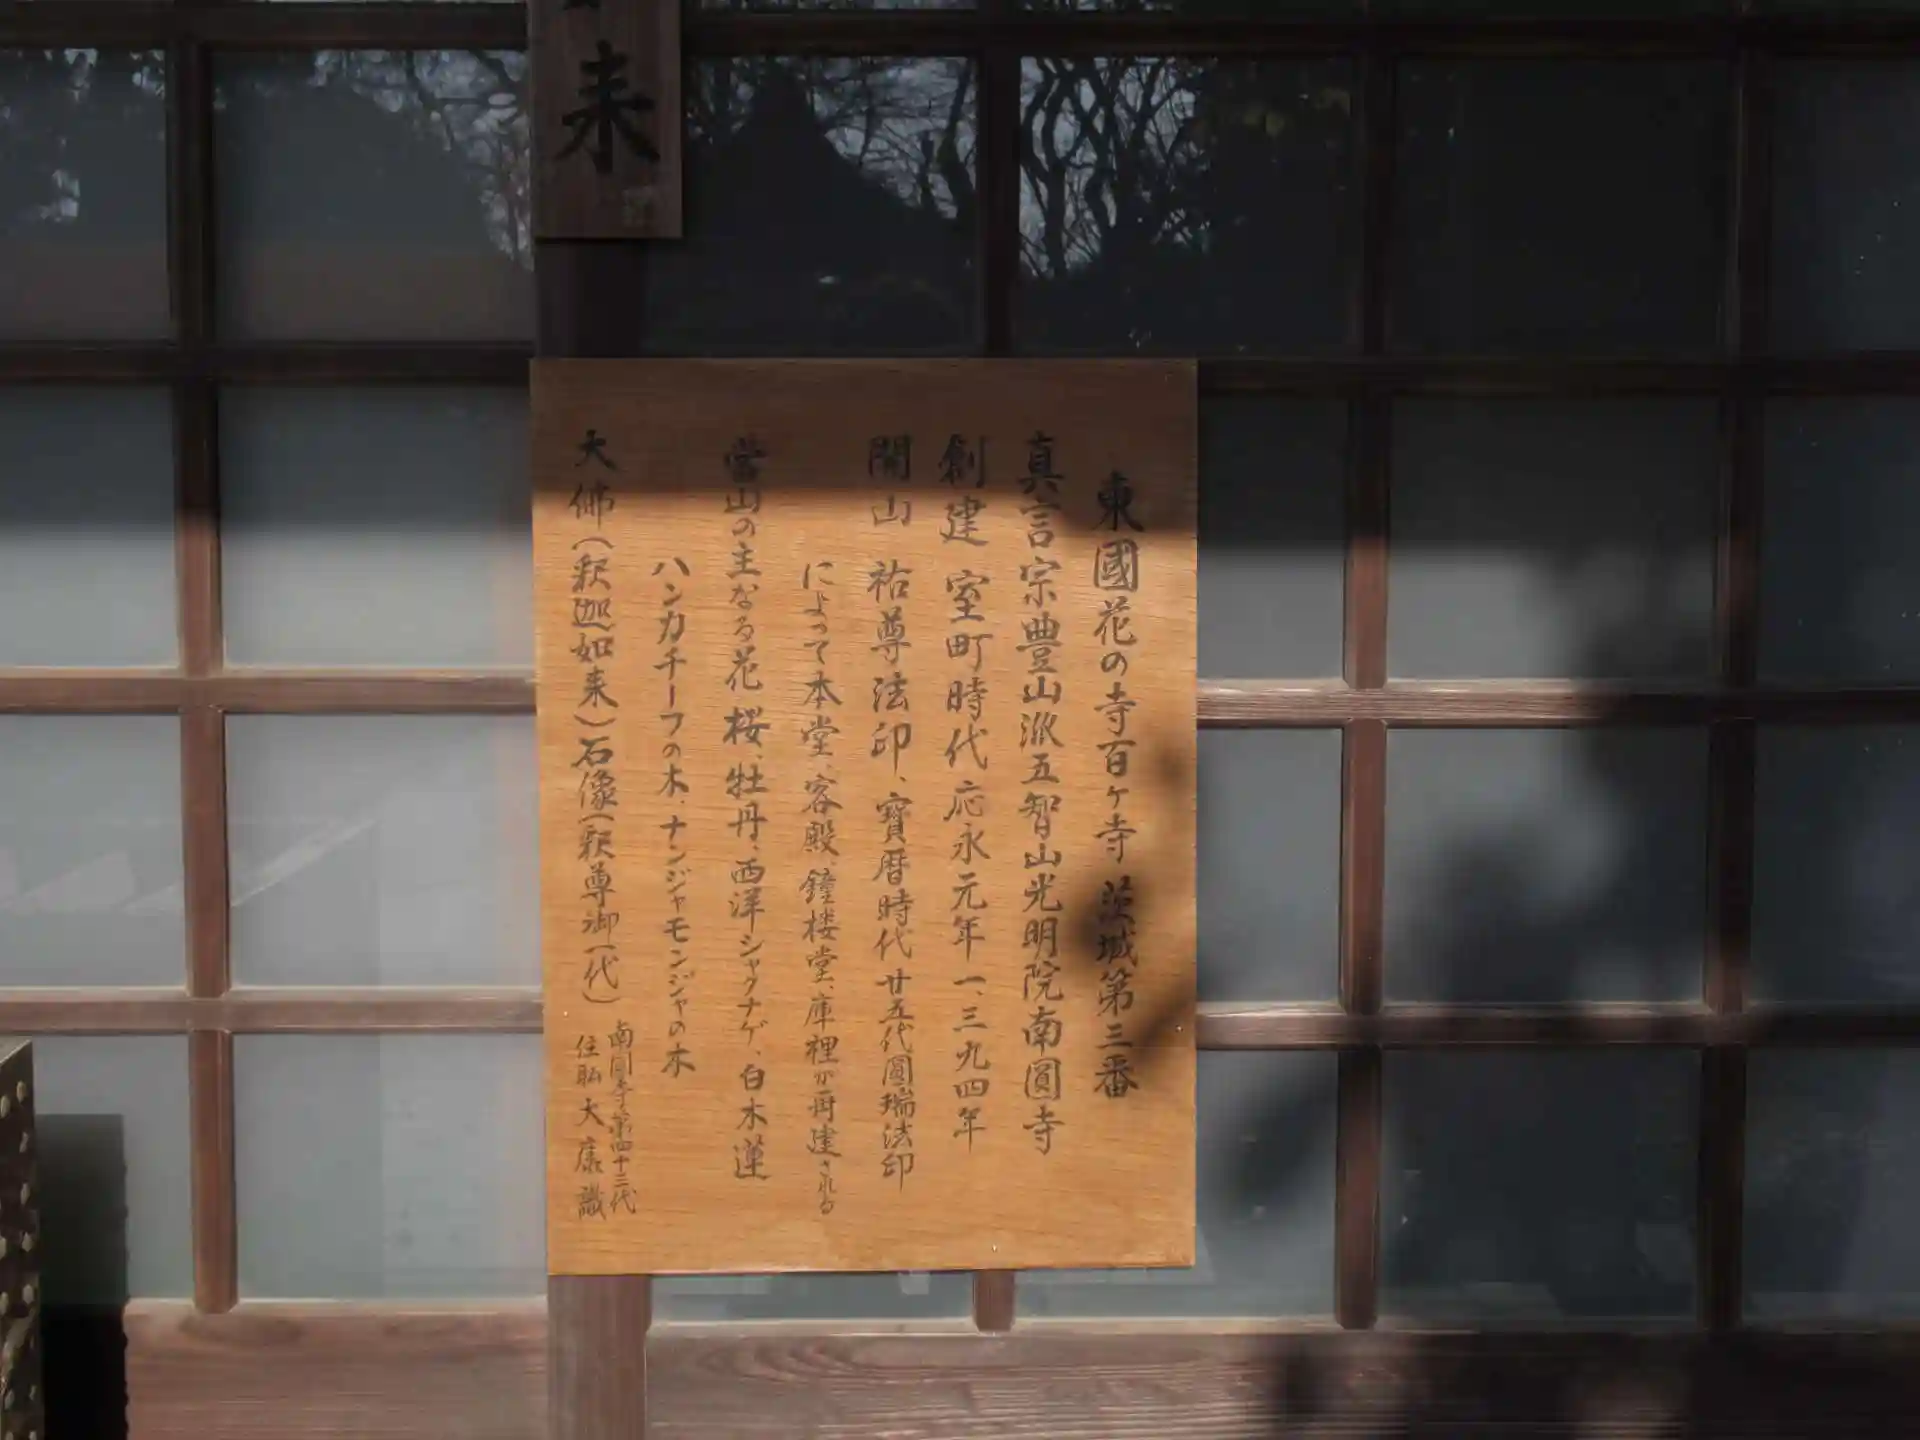 来
東國花の寺百ヶ寺 茨城第三番
真言宗豊山派五智山光明院南圓寺
創建 室町時代応永元年一、三九四年
開山 祐尊法印、寶暦時代廿五代圓瑞法印
によって本堂、客殿、鐘楼堂、庫裡が再建される
當山の主なる花 桜、牡丹、西洋シャクナゲ、白木蓮
ハンカチーフの木、ナンジャモンジャの木
大佛(釈迦如来)石像(釈尊御一代)
南圓寺第四十三代
住職 大康 識